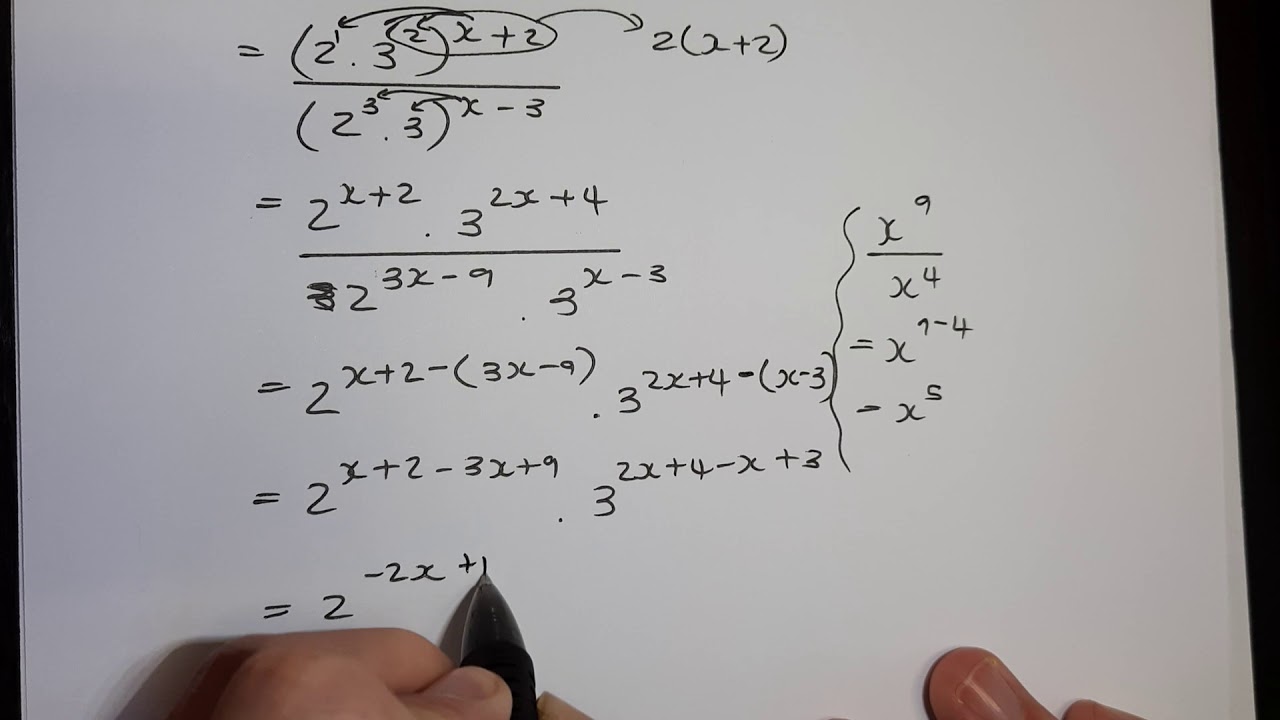 = (2^1 . 3^2)^{x+2} 2(x+2)
(2^3 . 3)^{x-3}
= 2^{x+2} . 3^{2x+4}
2^{3x-9} . 3^{x-3}
= 2^{x+2-(3x-9)} . 3^{2x+4-(x-3)}
= 2^{x+2-3x+9} . 3^{2x+4-x+3}
= 2^{-2x+1
x^9
x^4
= x^{9-4}
= x^5